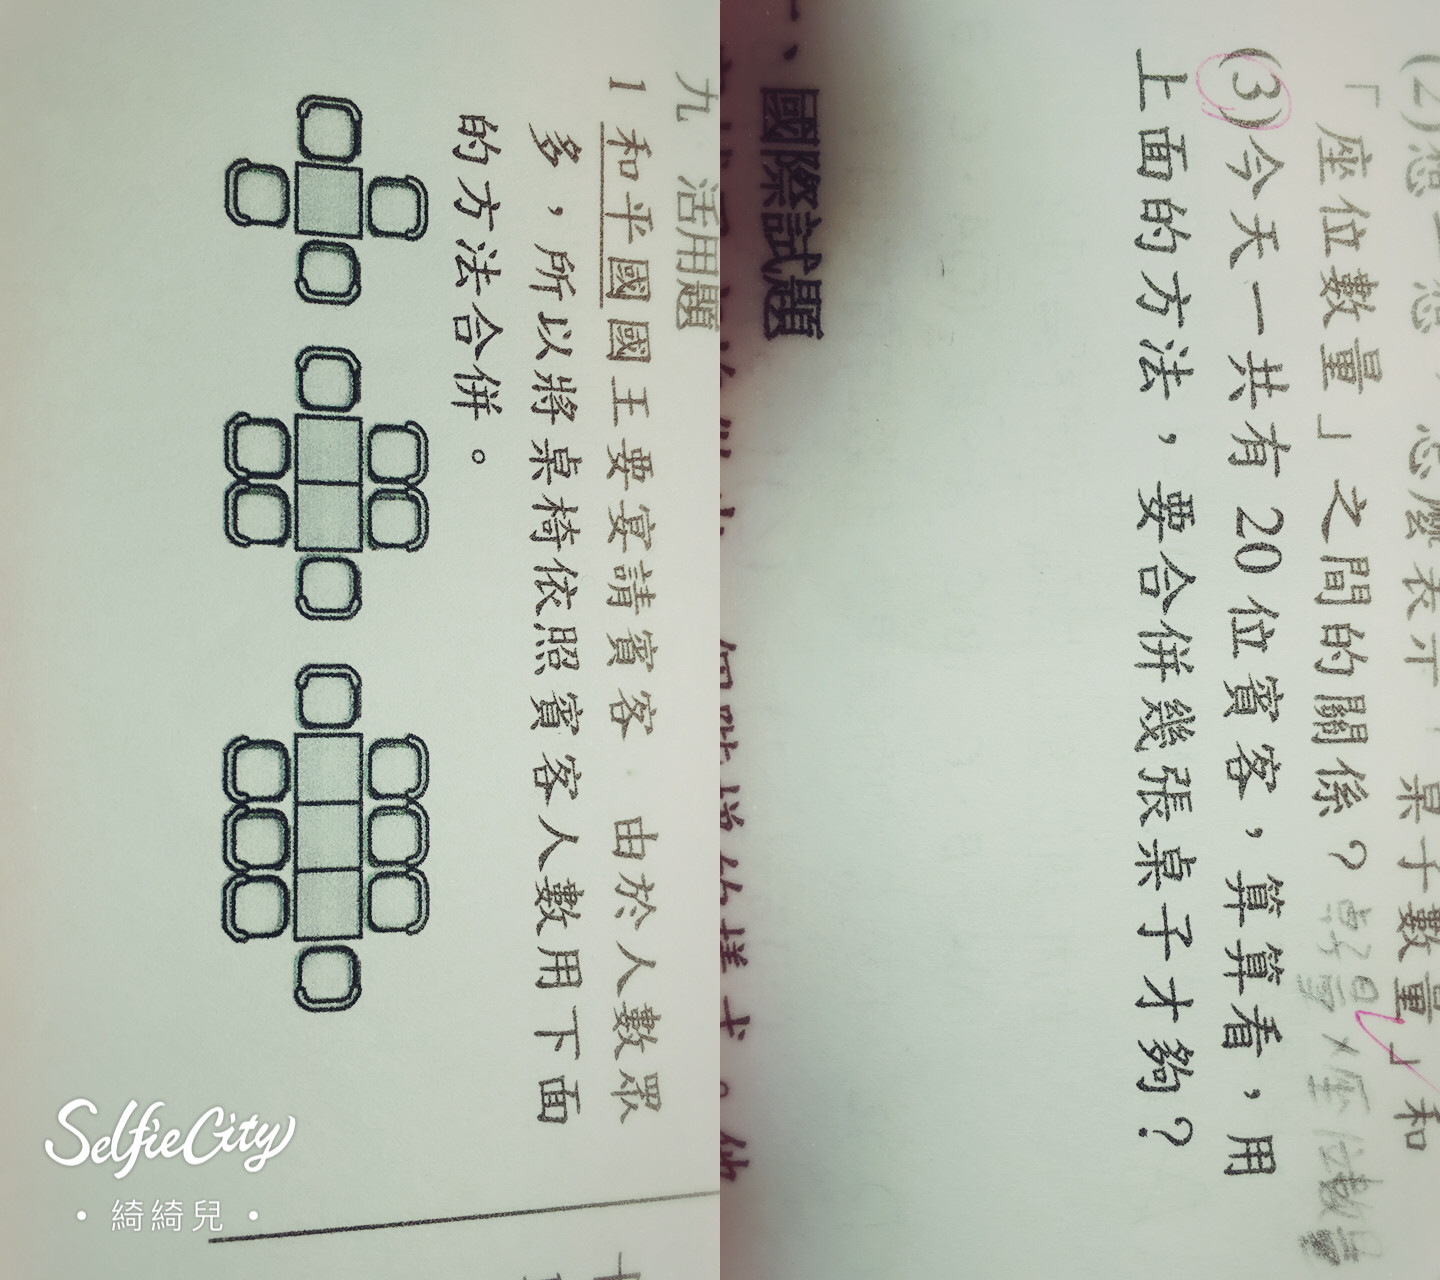 九 活用題
1 和平國國王要宴請賓客 由於人數眾
多，所以將桌椅依照賓客人數用下面
的方法合併。
桌子數量」和
「座位數量」之間的關係？
(3)今天一共有20位賓客，算算看，用
上面的方法，要合併幾張桌子才夠？
一、國際試題
SelfieCity
• 綺綺兒 •